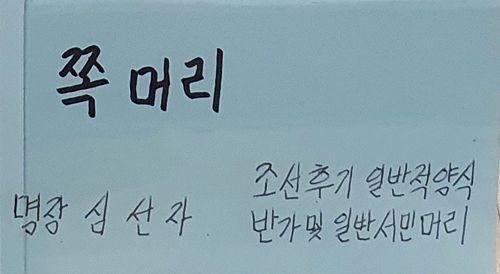 쪽머리
조선후기 일반적양식
명장 심선자
반가및 일반서민머리